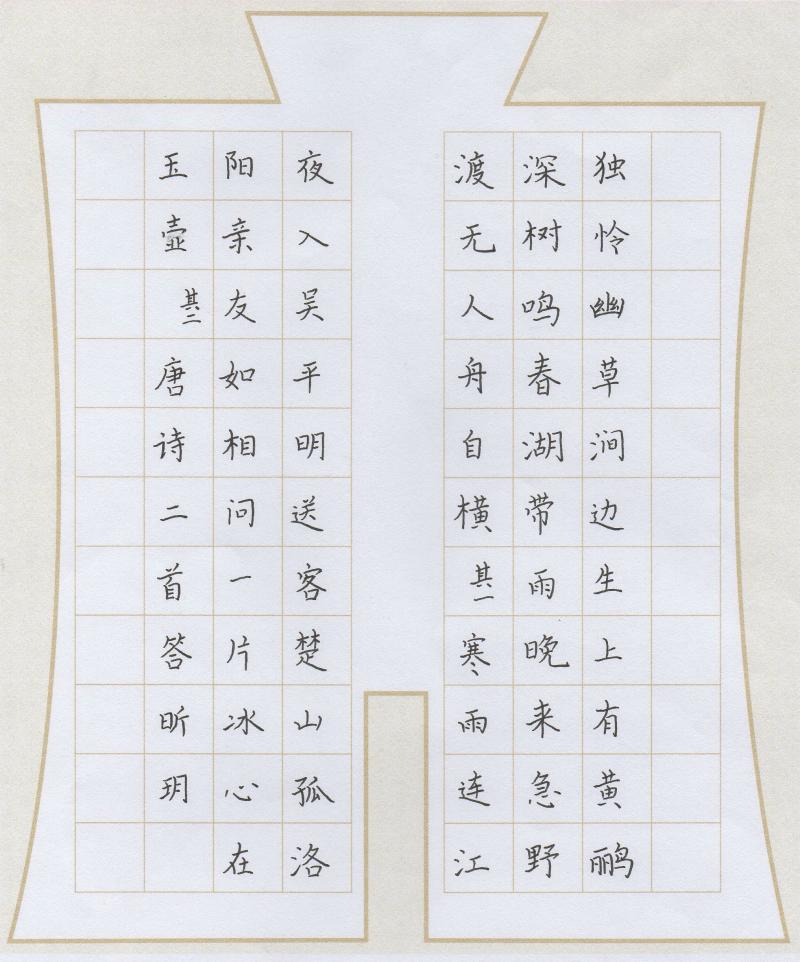 独怜幽草涧边生上有黄鹂
深树鸣春湖带雨晚来急野
渡无人舟自横其一寒雨连江
夜入吴平明送客楚山孤洛
阳亲友如相问一片冰心在
玉壶其二唐诗二首答昕玥